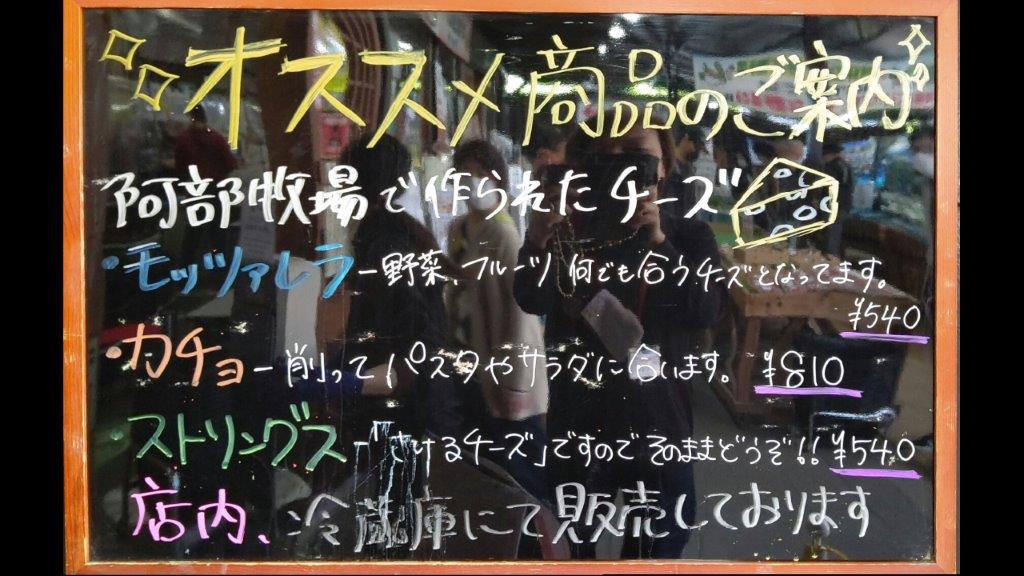 オススメ商品のご案内
阿部牧場で作られたチーズ
・モッツァレラー野菜、フルーツ何でも合うチーズとなってます。
¥540
・カチョー削ってパスタやサラダに合います。 ¥810
・ストリングス「さけるチーズ」ですのでそのままどうぞ!! ¥540
店内、冷蔵庫にて販売しております